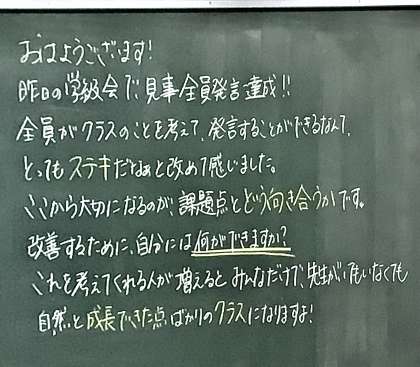 おはようございます!
昨日の学級会で、見事全員発言達成!!
全員がクラスのことを考えて、発言することができるなんて、
とってもステキだなぁと改めて感じました。
ここから大切になるのが、課題点とどう向き合うかです。
改善するために、自分には何ができますか?
これを考えてくれる人が増えるとみんなだけで、先生がいてもいなくても
自然と成長できた点ばかりのクラスになりますよ!